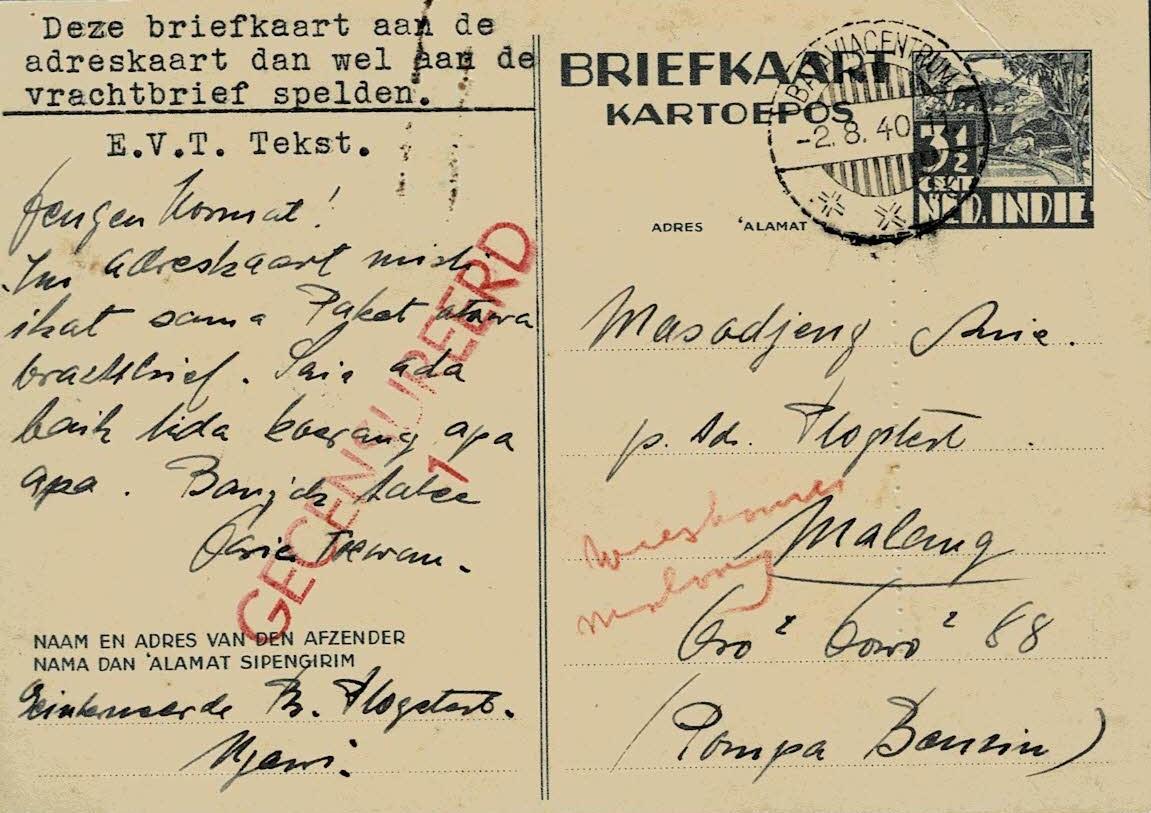 Deze briefkaart aan de
adreskaart dan wel aan de
vrachtbrief spelden.
E.V.T. Tekst.
Dengen Hormat!
Ini adreskaart misti
ikat sama Paket atawa
vrachtbrief. Saia ada
baik tida koerang apa
apa. Banjak tabee
Toewan.
GECENSUREERD
1
NAAM EN ADRES VAN DEN AFZENDER
NAMA DAN 'ALAMAT SIPENGIRIM
Geinterneerde
Ngawi.
BRIEFKAART
KARTOEPOS
BATAVIACENTRUM
-2.8.40
3½
CENT
NED. INDIE
ADRES 'ALAMAT
Masadjeng
p. Adr.
Malang
Malang
88
(Pompa Bensin)